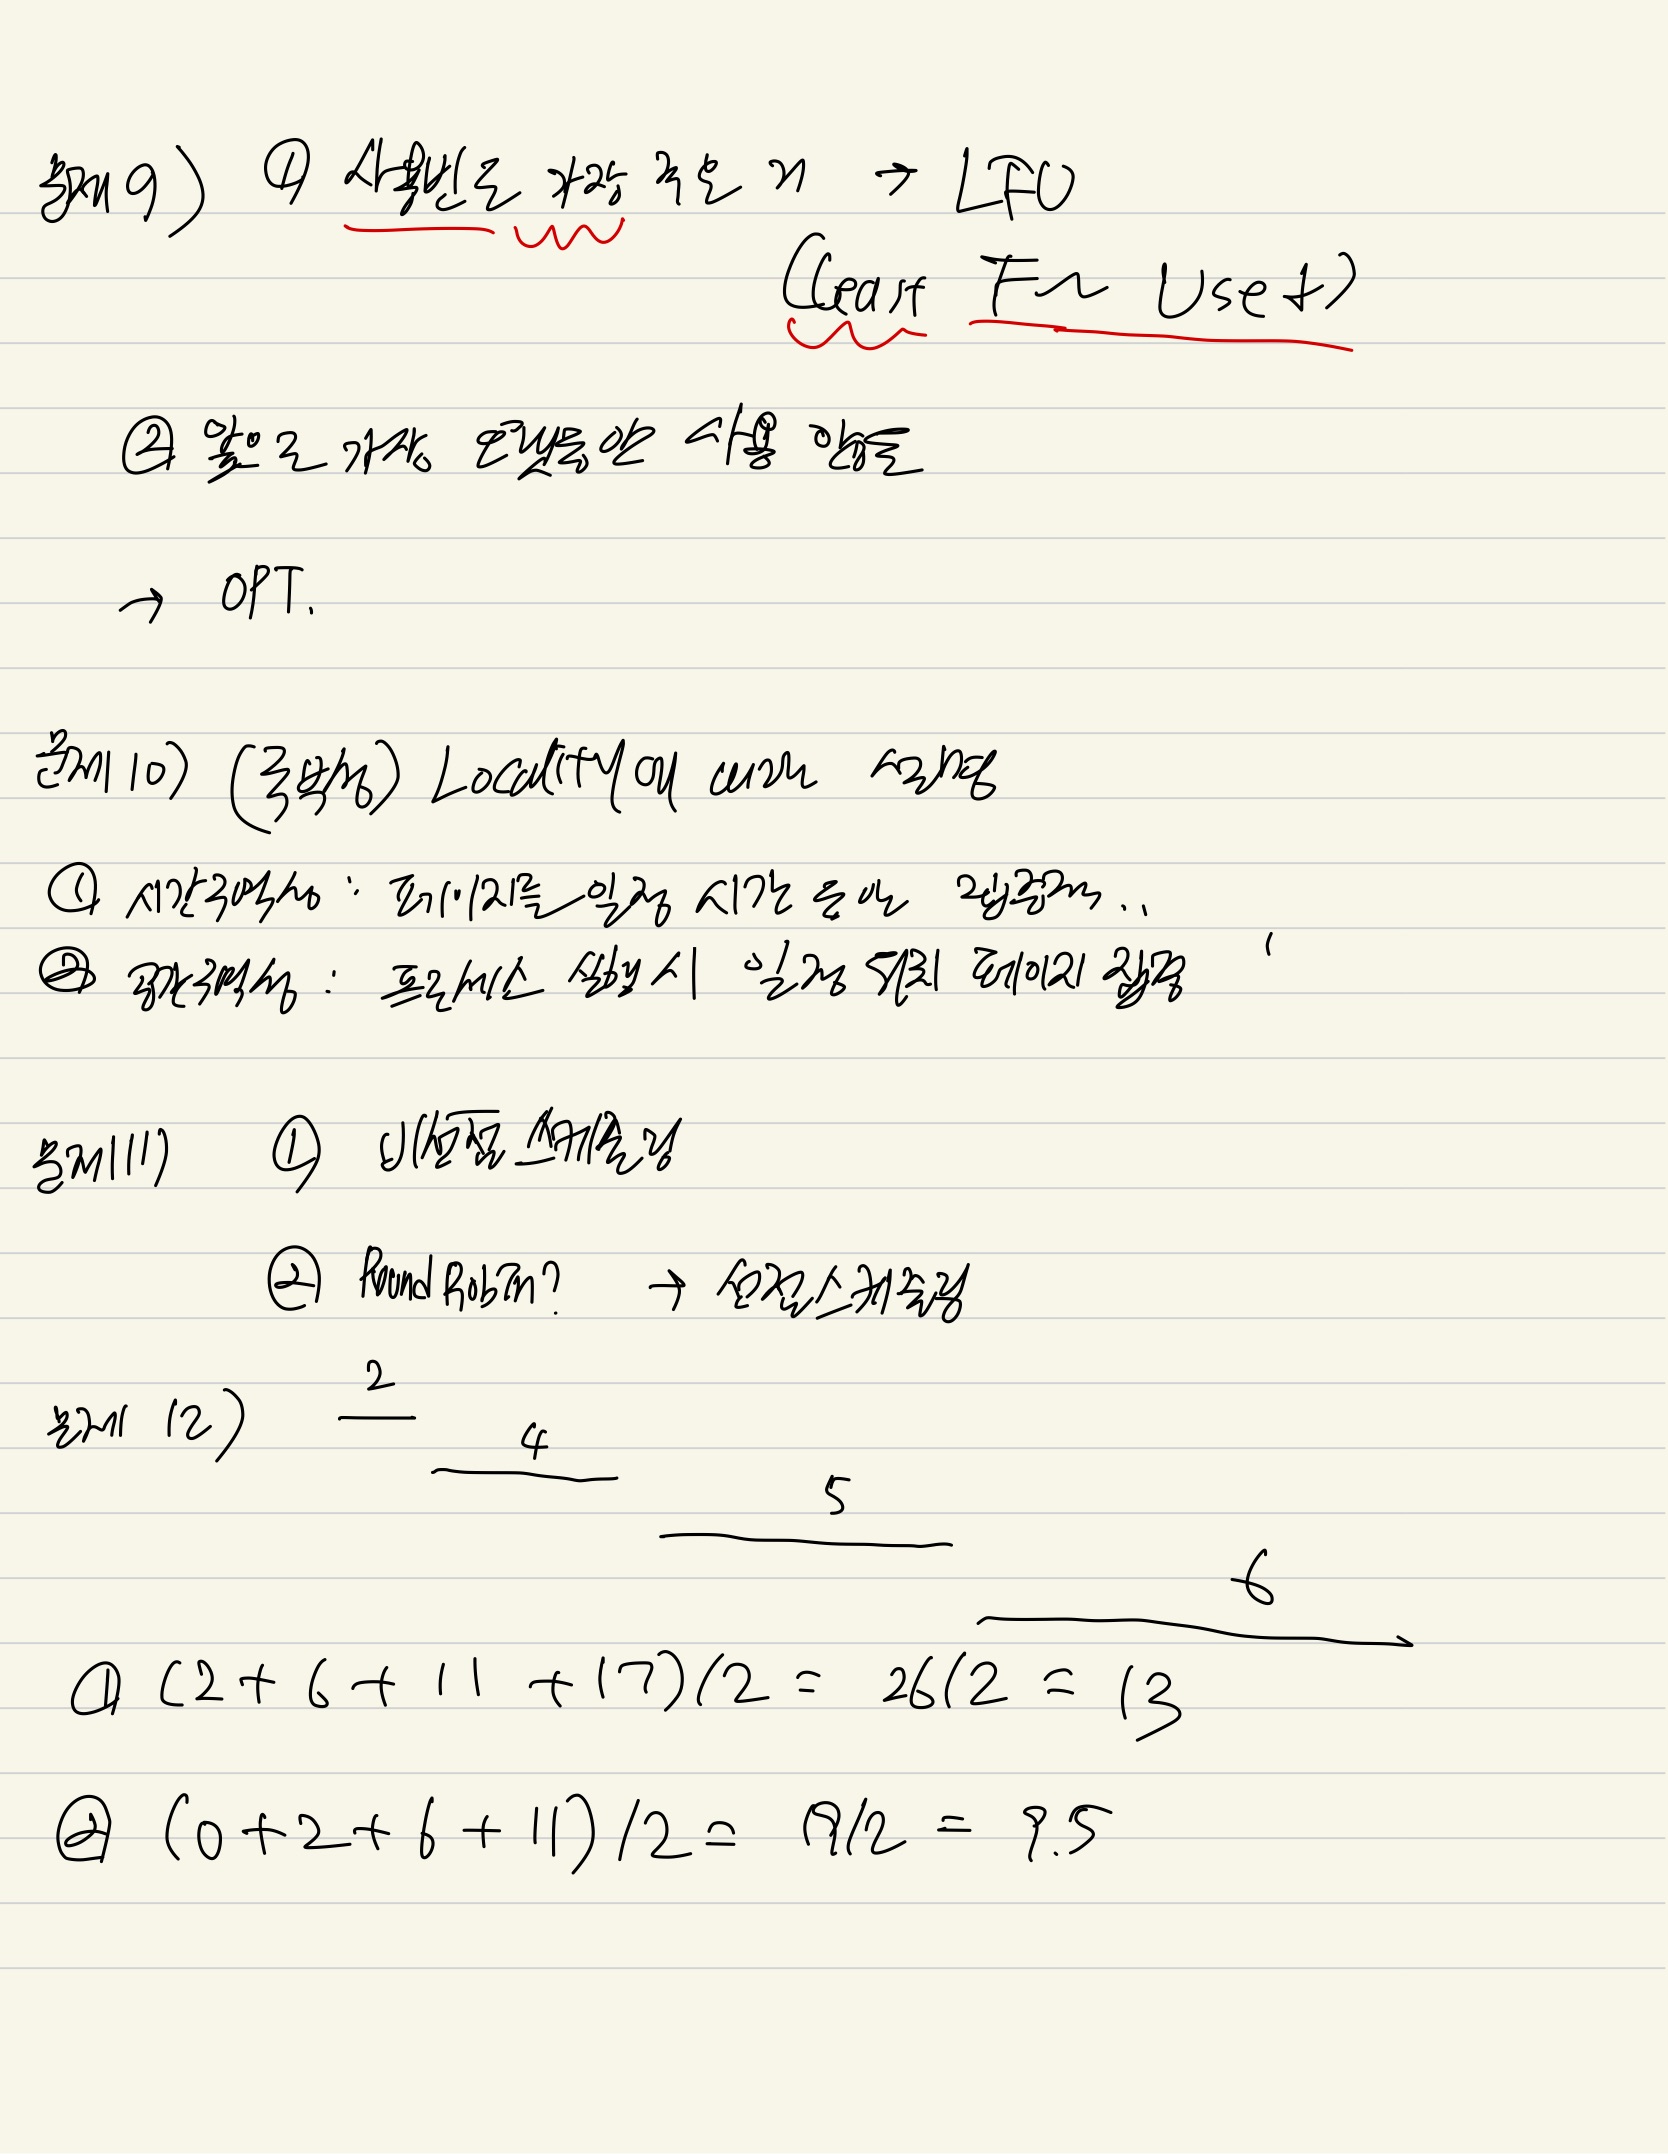 문제 9) ① 사용빈도 가장 적은 거 → LFU
(Least F~ Used)
② 앞으로 가장 오랫동안 사용 않을
→ OPT.
문제 10) (국부성) Locality에 대한 설명
① 시간구역성 : 페이지를 일정 시간 동안 집중적..
② 공간구역성 : 프로세스 실행 시 일정 위치 페이지 집중
문제 11) ① 비선점 스케줄링
② Round Robin? → 선점스케줄링
문제 12) 2
4
5
6
① (2 + 6 + 11 + 17)/2 = 26/2 = 13
② (0+2+6+11)/2 = 19/2 = 9.5